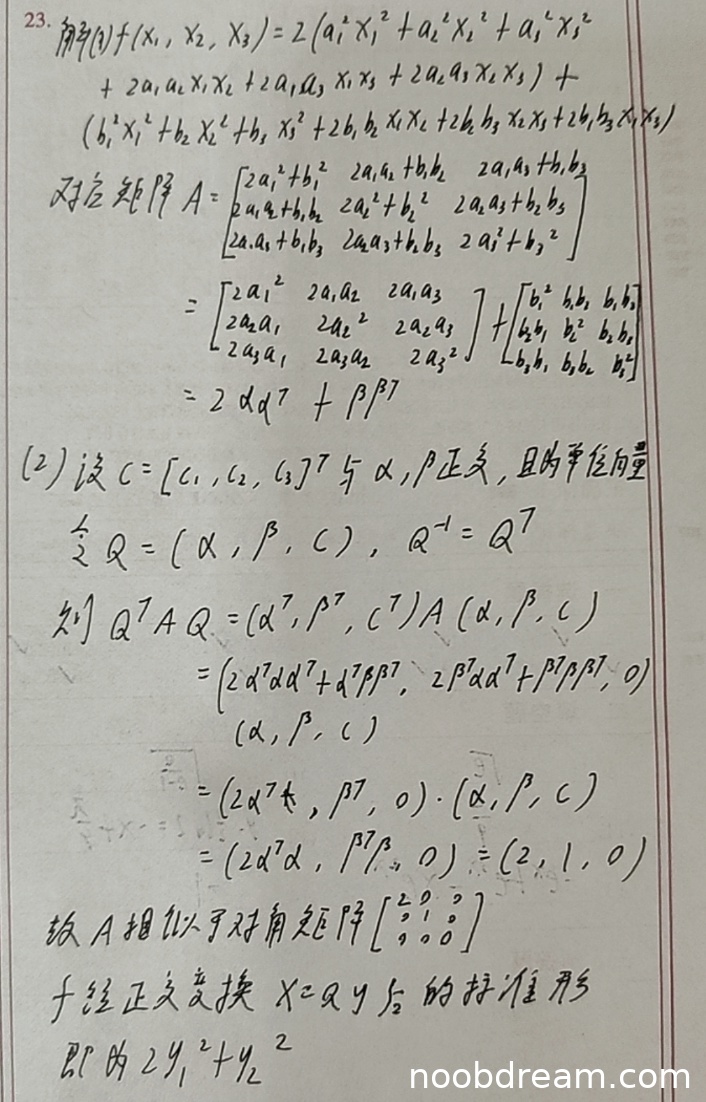 23. 解(1) f(x₁, x₂, x₃) = 2(a₁²x₁² + a₂²x₂² + a₃²x₃²
+ 2a₁a₂x₁x₂ + 2a₁a₃x₁x₃ + 2a₂a₃x₂x₃) +
(b₁²x₁² + b₂x₂² + b₃x₃² + 2b₁b₂x₁x₂ + 2b₂b₃x₂x₃ + 2b₁b₃x₁x₃)
对应矩阵 A = [2a₁²+b₁² 2a₁a₂+b₁b₂ 2a₁a₃+b₁b₃
2a₁a₂+b₁b₂ 2a₂²+b₂² 2a₂a₃+b₂b₃
2a₁a₃+b₁b₃ 2a₂a₃+b₂b₃ 2a₃²+b₃²]
= [2a₁² 2a₁a₂ 2a₁a₃ ] + [b₁² b₁b₂ b₁b₃]
2a₂a₁ 2a₂² 2a₂a₃ b₂b₁ b₂² b₂b₃
2a₃a₁ 2a₃a₂ 2a₃² b₃b₁ b₃b₂ b₃²
= 2αα^T + ββ^T
(2) 设 C = [c₁, c₂, c₃]^T 与 α, β 正交, 且为单位向量
令 Q = (α, β, C), Q⁻¹ = Q^T
则 Q^T A Q = (α^T, β^T, C^T) A (α, β, C)
= (2α^Tαα^T + α^Tββ^T, 2β^Tαα^T + β^Tββ^T, 0)
(α, β, C)
= (2α^T, β^T, 0)·(α, β, C)
= (2α^Tα, β^Tβ, 0) = (2, 1, 0)
故 A 相似于对角矩阵 [2 0 0
0 1 0
0 0 0]
f 经正交变换 X = Qy 后的标准形
即为 2y₁² + y₂²
noobdream.com